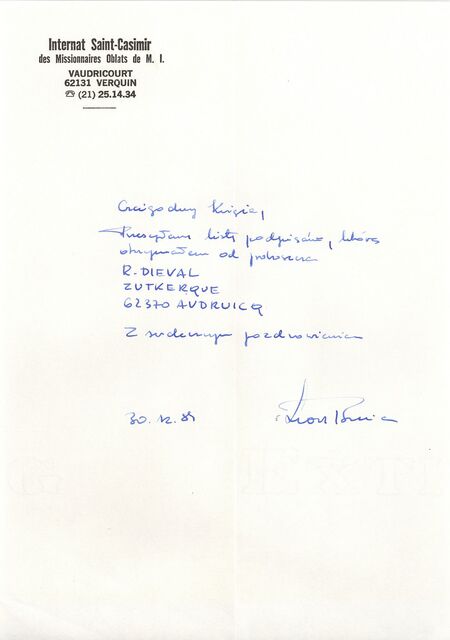 Internat Saint-Casimir
des Missionnaires Oblats de M. I.
VAUDRICOURT
62131 VERQUIN
☎ (21) 25.14.34
Czcigodny Księże,
Przesyłam listę podpisów, którą
otrzymałem od proboszcza
R. DIEVAL
ZUTKERQUE
62370 AUDRUICQ
Z serdecznym pozdrowieniem
30.12.84